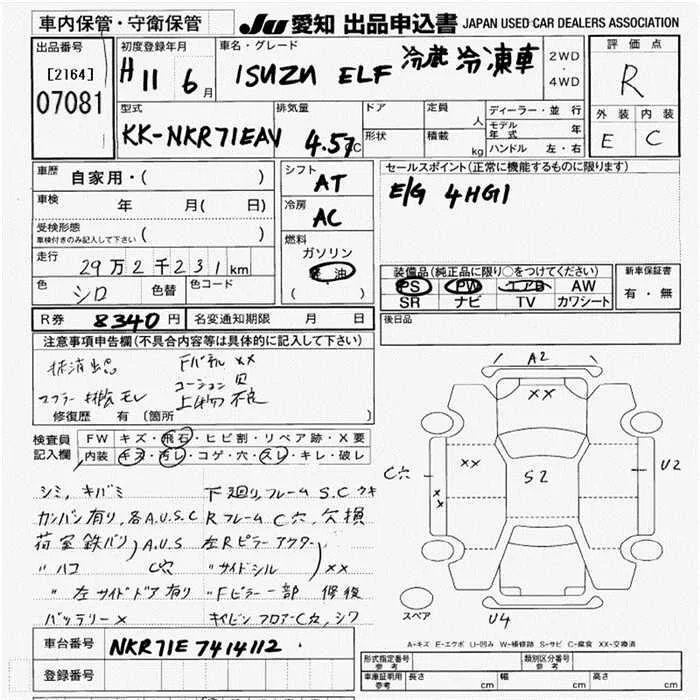 車内保管・守衛保管
JU 愛知 出品申込書 JAPAN USED CAR DEALERS ASSOCIATION
出品番号
[2164]
07081
初度登録年月
H 11 6月
車名・グレード
ISUZU ELF 冷蔵冷凍車
2WD
・
4WD
評価点
R
外装 内装
E C
型式
KK-NKR71EAV
排気量
4.5 CC
ドア
形状
定員 人
積載 kg
ディーラー・並行
モデル年式 年
ハンドル 左・右
車歴 自家用・( )
車検 年 月( 日)
受検形態
車検付きのみ記入して下さい ( )
走行
29万2千231km
色 シロ 色替 色コード
シフト
AT
冷房
AC
燃料
ガソリン
軽油
( )
セールスポイント(正常に機能するものに限ります)
E/G 4HG1
装備品(純正品に限り○をつけてください)
PS PW エアB AW
SR ナビ TV カワシート
新車保証書
有・無
後日品
R券 8340円 名変通知期限 月 日
注意事項申告欄(不具合内容等は具体的に記入して下さい)
Fパネル XX
コーション
マフラー 排気モレ 上物不良
修復歴 有 〔箇所 〕
検査員
記入欄
FW キズ・飛石・ヒビ割・リペア跡・X要
内装 キズ・汚レ・コゲ・穴・スレ・キレ・破レ
シミ,キバミ
カンバン有り,各A.U.S.C
荷室鉄バリ)A.U.S
〃ハコ C穴
〃左サイドドア有り
バッテリー×
下廻り,フレームS.C ウキ
Rフレーム C穴,欠損
左Rピラーアウター
〃サイドシル ) XX
〃Fピラー一部
フロアーC穴,シワ
A2
XX
XX
C穴
XX
S2
U2
U4
スペア
A-キズ E-エクボ U-凹み W-補修跡 S-サビ C-腐食 XX-交換済
車台番号 NKR71E 7414112
登録番号
形式指定番号
参考
類別区分番号
参考
車庫証明用
参考
長さ cm 幅 cm 高さ cm